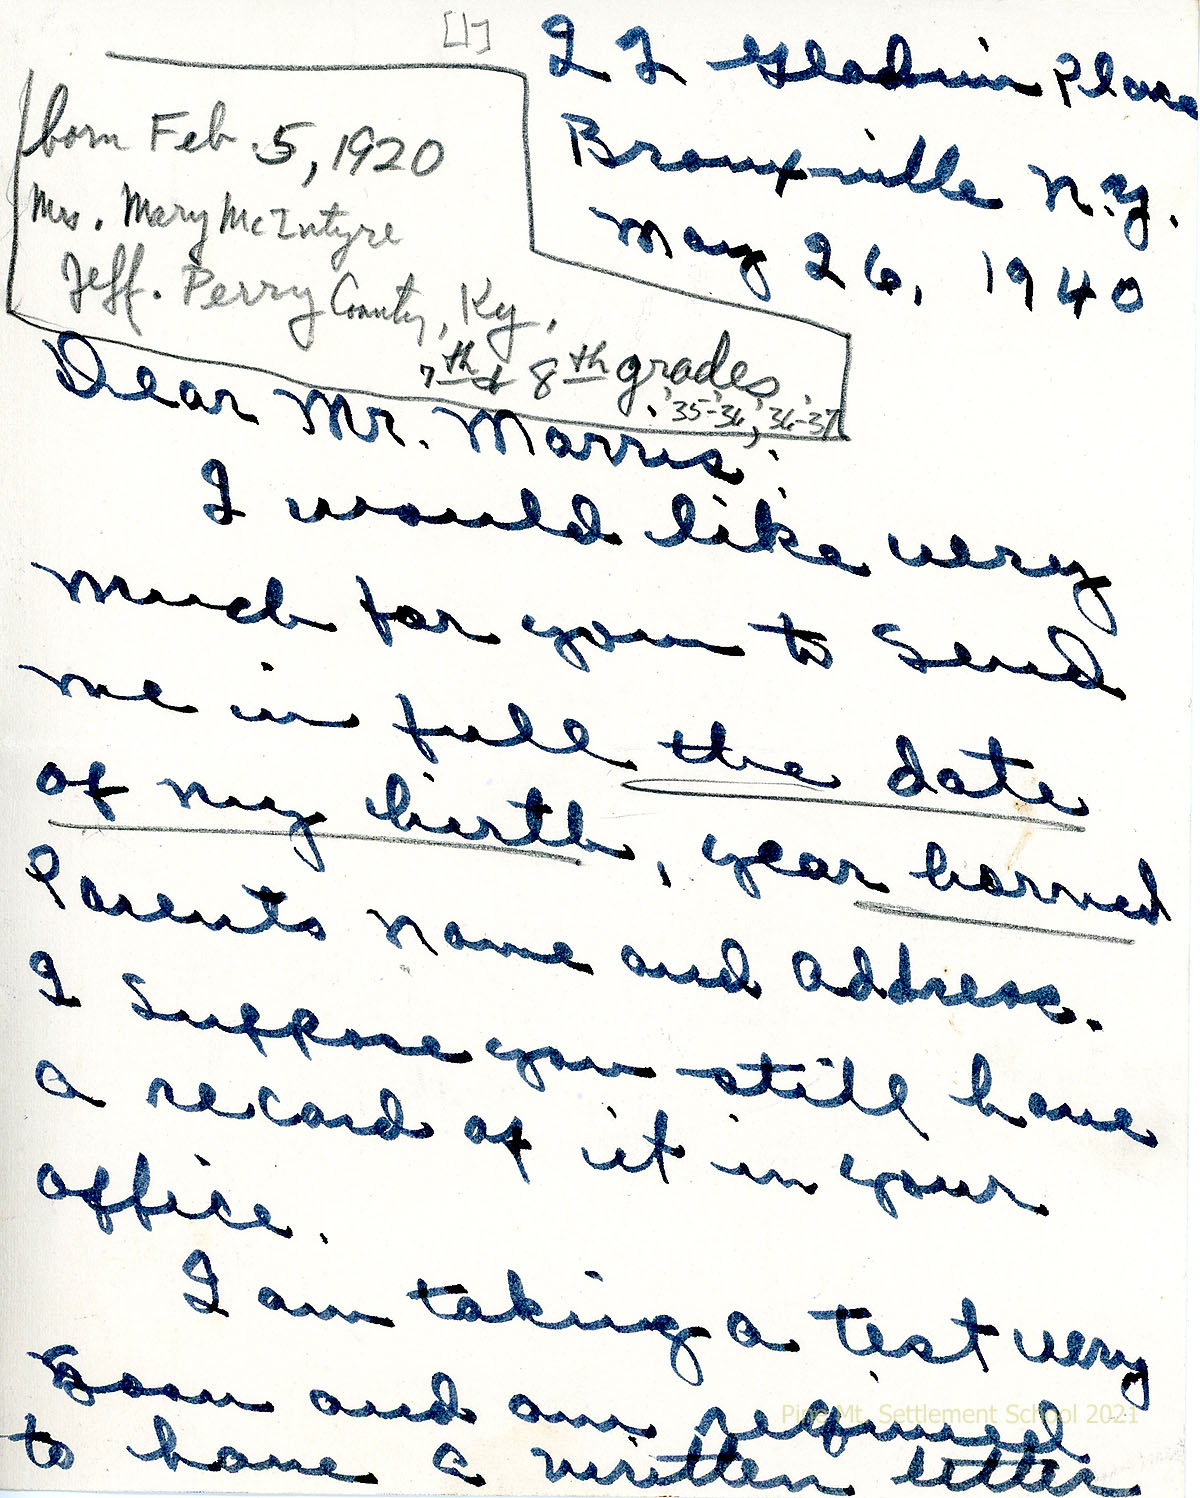 [1]
22 Gladwin Place
Bronxville N.Y.
May 26, 1940
born Feb. 5, 1920
Mrs. Mary McIntyre
Jeff. Perry County, Ky.
7th & 8th grades
'35-'36, '36-'37
Dear Mr. Morris:
I would like very
much for you to send
me in full the date
of my birth, year borned
Parents name and address.
I suppose you still have
a record of it in your
office.
I am taking a test very
soon and am required
to have a written letter
Pine Mt. Settlement School 2021